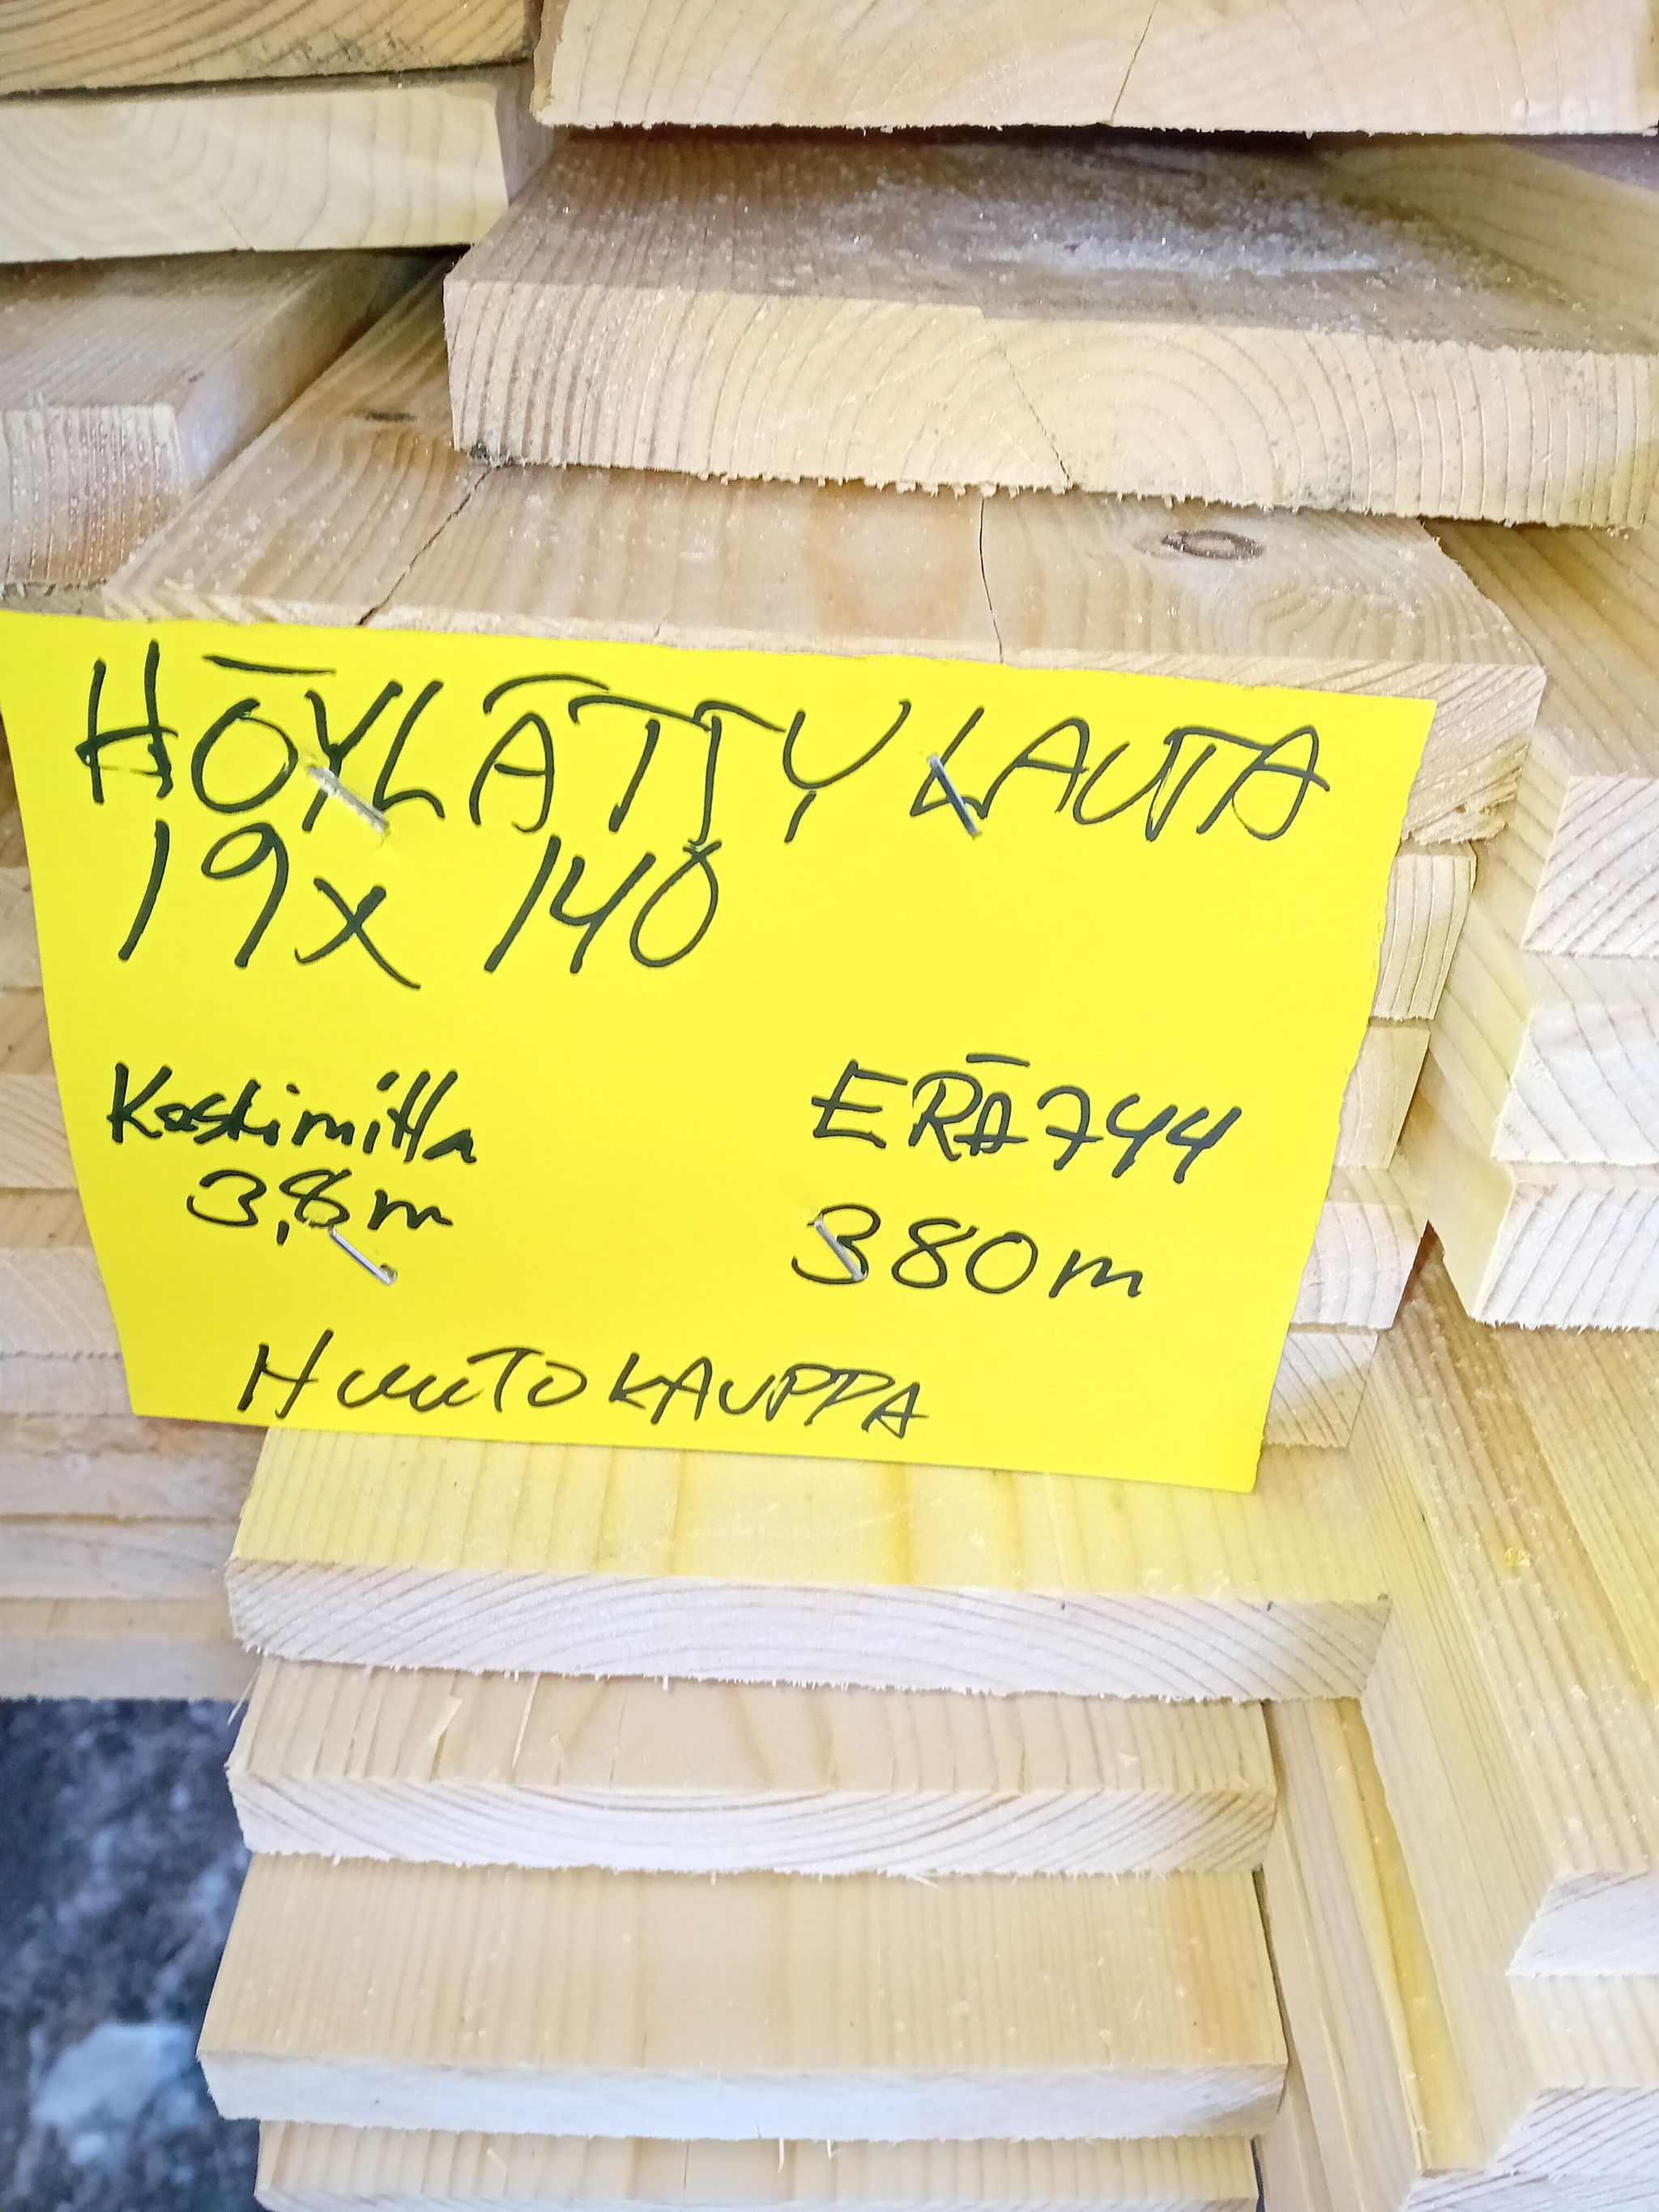 HÖYLÄTTY LAUTA
19x 140
Keskimitta
3,8m
ERÄ 744
380m
HUUTOKAUPPA